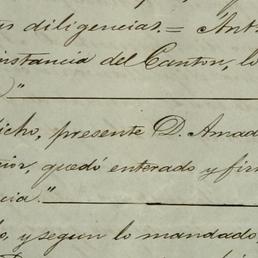 diligencias. = Ant
instancia del Canton, lo
"
dicho, presente D. Amad
quedó enterado y fir
cia."
y segun lo mandado,